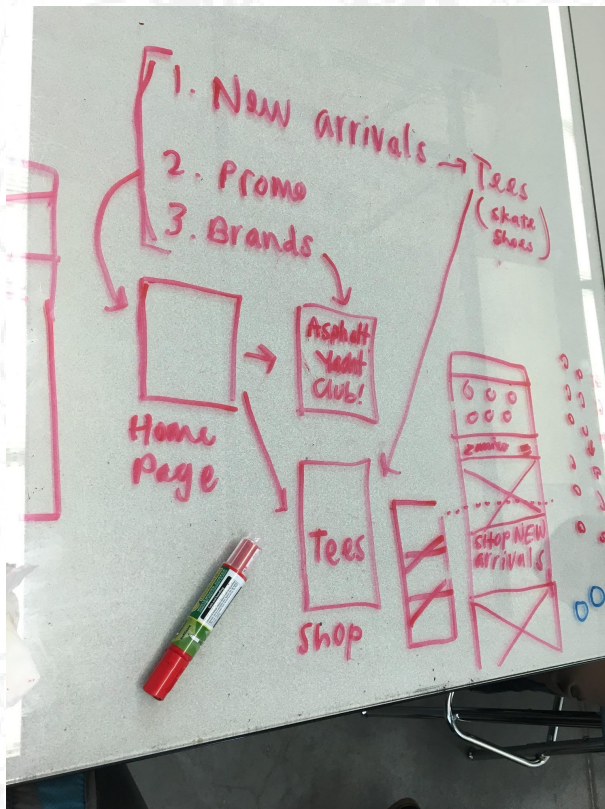 1. New arrivals → Tees
(skate
shoes)
2. Promo
3. Brands
Asphalt
Yacht
Club!
Home
Page
Tees
Shop
SHOP NEW
arrivals